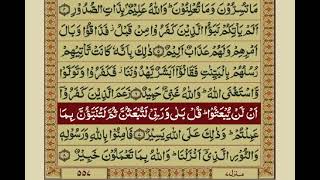 مَا تُسِرُّوْنَ وَمَا تُعْلِنُوْنَ ؕ وَاللّٰهُ عَلِيْمٌۢ بِذَاتِ الصُّدُوْرِ ۝
اَلَمْ يَاْتِكُمْ نَبَؤُا الَّذِيْنَ كَفَرُوْا مِنْ قَبْلُ ؗ فَذَاقُوْا وَبَالَ
اَمْرِهِمْ وَلَهُمْ عَذَابٌ اَلِيْمٌ ۝ ذٰلِكَ بِاَنَّهٗ كَانَتْ تَّاْتِيْهِمْ
رُسُلُهُمْ بِالْبَيِّنٰتِ فَقَالُوْۤا اَبَشَرٌ يَّهْدُوْنَنَا ؗ فَكَفَرُوْا وَتَوَلَّوْا
وَّاسْتَغْنَى اللّٰهُ ؕ وَاللّٰهُ غَنِيٌّ حَمِيْدٌ ۝ زَعَمَ الَّذِيْنَ كَفَرُوْۤا
اَنْ لَّنْ يُّبْعَثُوْا ؕ قُلْ بَلٰى وَرَبِّيْ لَتُبْعَثُنَّ ثُمَّ لَتُنَبَّؤُنَّ بِمَا
عَمِلْتُمْ ؕ وَذٰلِكَ عَلَى اللّٰهِ يَسِيْرٌ ۝ فَاٰمِنُوْا بِاللّٰهِ وَرَسُوْلِهٖ
وَالنُّوْرِ الَّذِيْۤ اَنْزَلْنَا ؕ وَاللّٰهُ بِمَا تَعْمَلُوْنَ خَبِيْرٌ ۝
۵۵۷
منزل ۷